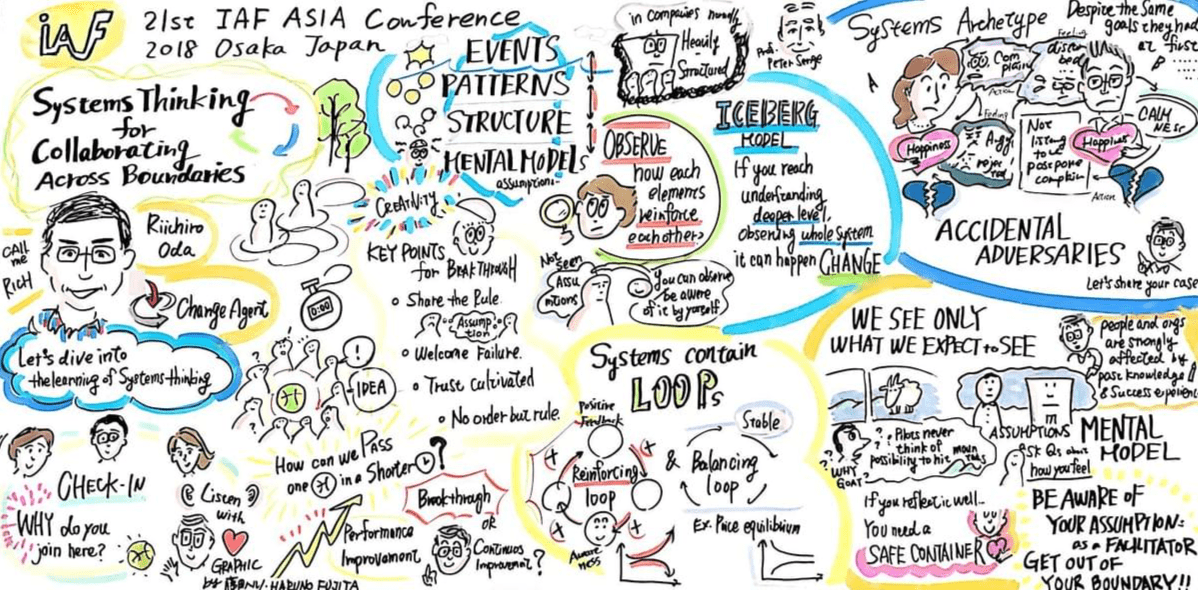 iAF
21st IAF ASIA Conference
2018 Osaka Japan
Systems Thinking
for
Collaborating
Across Boundaries
CALL
me
RICH
Riichiro
Oda
Change Agent
Let's dive into
the learning of Systems-thinking
CHECK-IN
WHY do you
join here?
Listen
with
GRAPHIC
by
HARUNO FUJITA
0:00
!
IDEA
How can we Pass
one in a Shorter ?
Performance
Improvament
Breakthrough
or
Continuos
Improvement?
EVENTS
PATTERNS
STRUCTURE
MENTAL MODELS
assumption
CREATIVITY
KEY POINTS
for BREAKTHROUGH
• Share the Rule.
Assump
tion
• Welcome Failure.
• Trust cultivated
• No order but rule.
in companies
Heavily
Structured
Prof.
Peter Senge
OBSERVE
how each
elements
reinforce
each other?
Not seen
Assu
mptions
You can observe
be aware
of it by yourself
ICEBERG
MODEL
If you reach
understanding
deeper level,
obsering whole system
it can happen CHANGE
Systems contain
LOOPs
Positive
Feedback
Reinforcing
loop
Aware
ness
& Balancing
loop
Stable
Ex. Price equilibium
Systems Archetype
Despite the Same
goals they had
at first
A
B
Feeling
Com
plaining
Action
Feeling
Happiness
Angry
rejec
ted
Not
listing
to us
postpone
Action
CALM
NESS
ACCIDENTAL
ADVERSARIES
Let's share your case
WE SEE ONLY
WHAT WE EXPECT to SEE
people and orgs
are strongly
affected by
past knowledge
& Success experience
WHY
GOAT?
Pilots never
think of
possibility to hit moun
tains
ASSUMPTIONS
MENTAL
MODEL
ASK Qs about
how you feel
If you reflect it well...
You need a
SAFE CONTAINER
BE AWARE of
YOUR ASSUMPTION
as a FACILITATOR
GET OUT OF
YOUR BOUNDARY!!